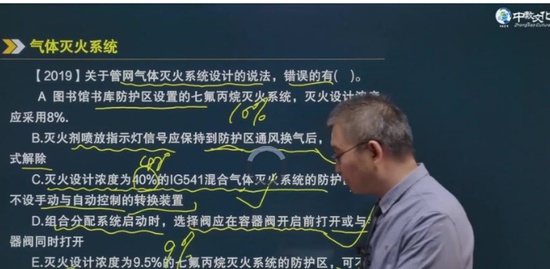 中教文化
气体灭火系统
【2019】关于管网气体灭火系统设计的说法，错误的有( )。
A 图书馆书库防护区设置的七氟丙烷灭火系统，灭火设计浓度
应采用8%. 10%
B.灭火剂喷放指示灯信号应保持到防护区通风换气后，
式解除
C.灭火设计浓度为40%的IG541混合气体灭火系统的防护
不设手动与自动控制的转换装置
D.组合分配系统启动时，选择阀应在容器阀开启前打开或与
器阀同时打开
9%
E.灭火设计浓度为9.5%的七氟丙烷灭火系统的防护区，可不